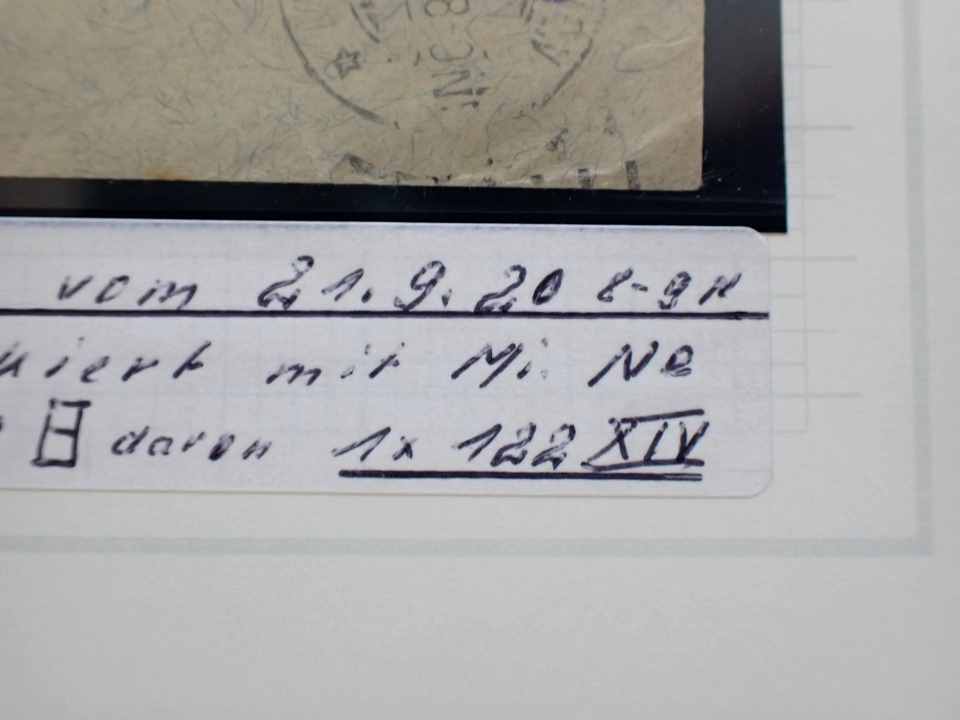 vom 21.9.20 8-9 N
kiert mit Mi. No
daron 1x 122 XIV